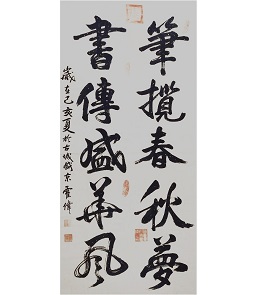 筆攬春秋夢
書傳盛華風
歲在己亥夏於古城